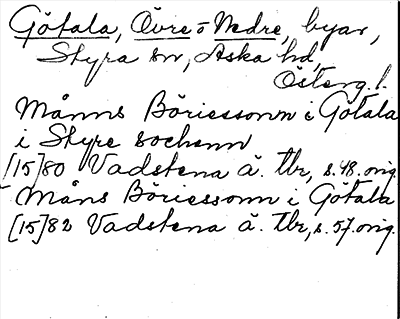 Götala, Övre o Nedre, byar,
Styra sn, Aska hd,
Österg. l.
Månns Böriessonn i Götala
i Styre sochenn
[15]80 Vadstena ä. tbr, s. 48. orig.
Måns Böriessonn i Götala
[15]82 Vadstena ä. tbr, s. 57. orig.